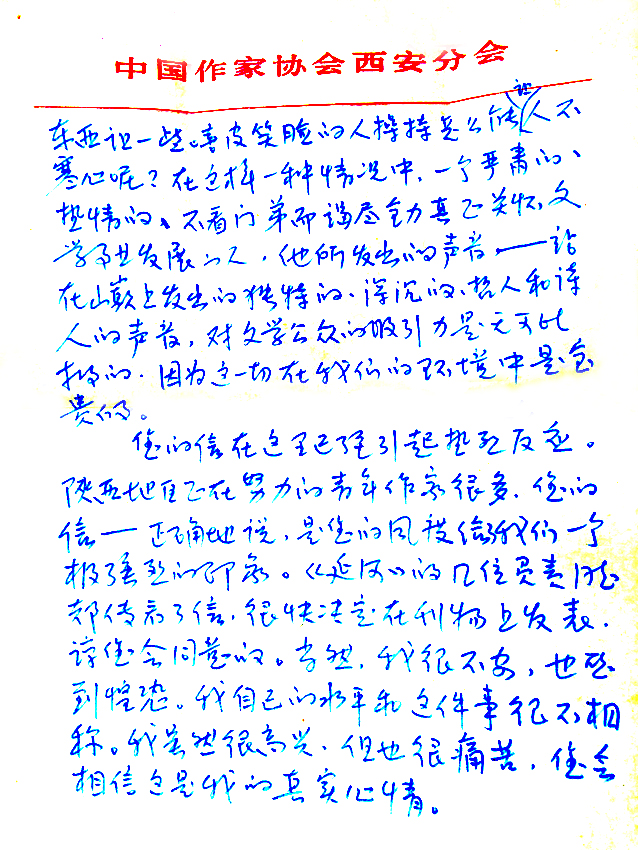 中国作家协会西安分会
东西让一些嘻皮笑脸的人操持怎么能让人不
寒心呢?在这样一种情况中,一个严肃的、
热情的、不看门第而竭尽全力真正关怀文
学事业发展的人,他所发出的声音——站
在山巅上发出的独特的、深沉的、哲人和诗
人的声音,对文学公众的吸引力是无可比
拟的。因为这一切在我们的环境中是宝
贵的。
您的信在这里已经引起热烈反应。
陕西地区正在努力的青年作家很多,您的
信——正确地说,是您的风度给我们一个
极强烈的印象。《延河》的几位负责同志
都传看了信,很快决定在刊物上发表,
谅您会同意的。当然,我很不安,也感
到惶恐。我自己的水平和这件事很不相
称。我虽然很高兴,但也很痛苦,您会
相信这是我的真实心情。